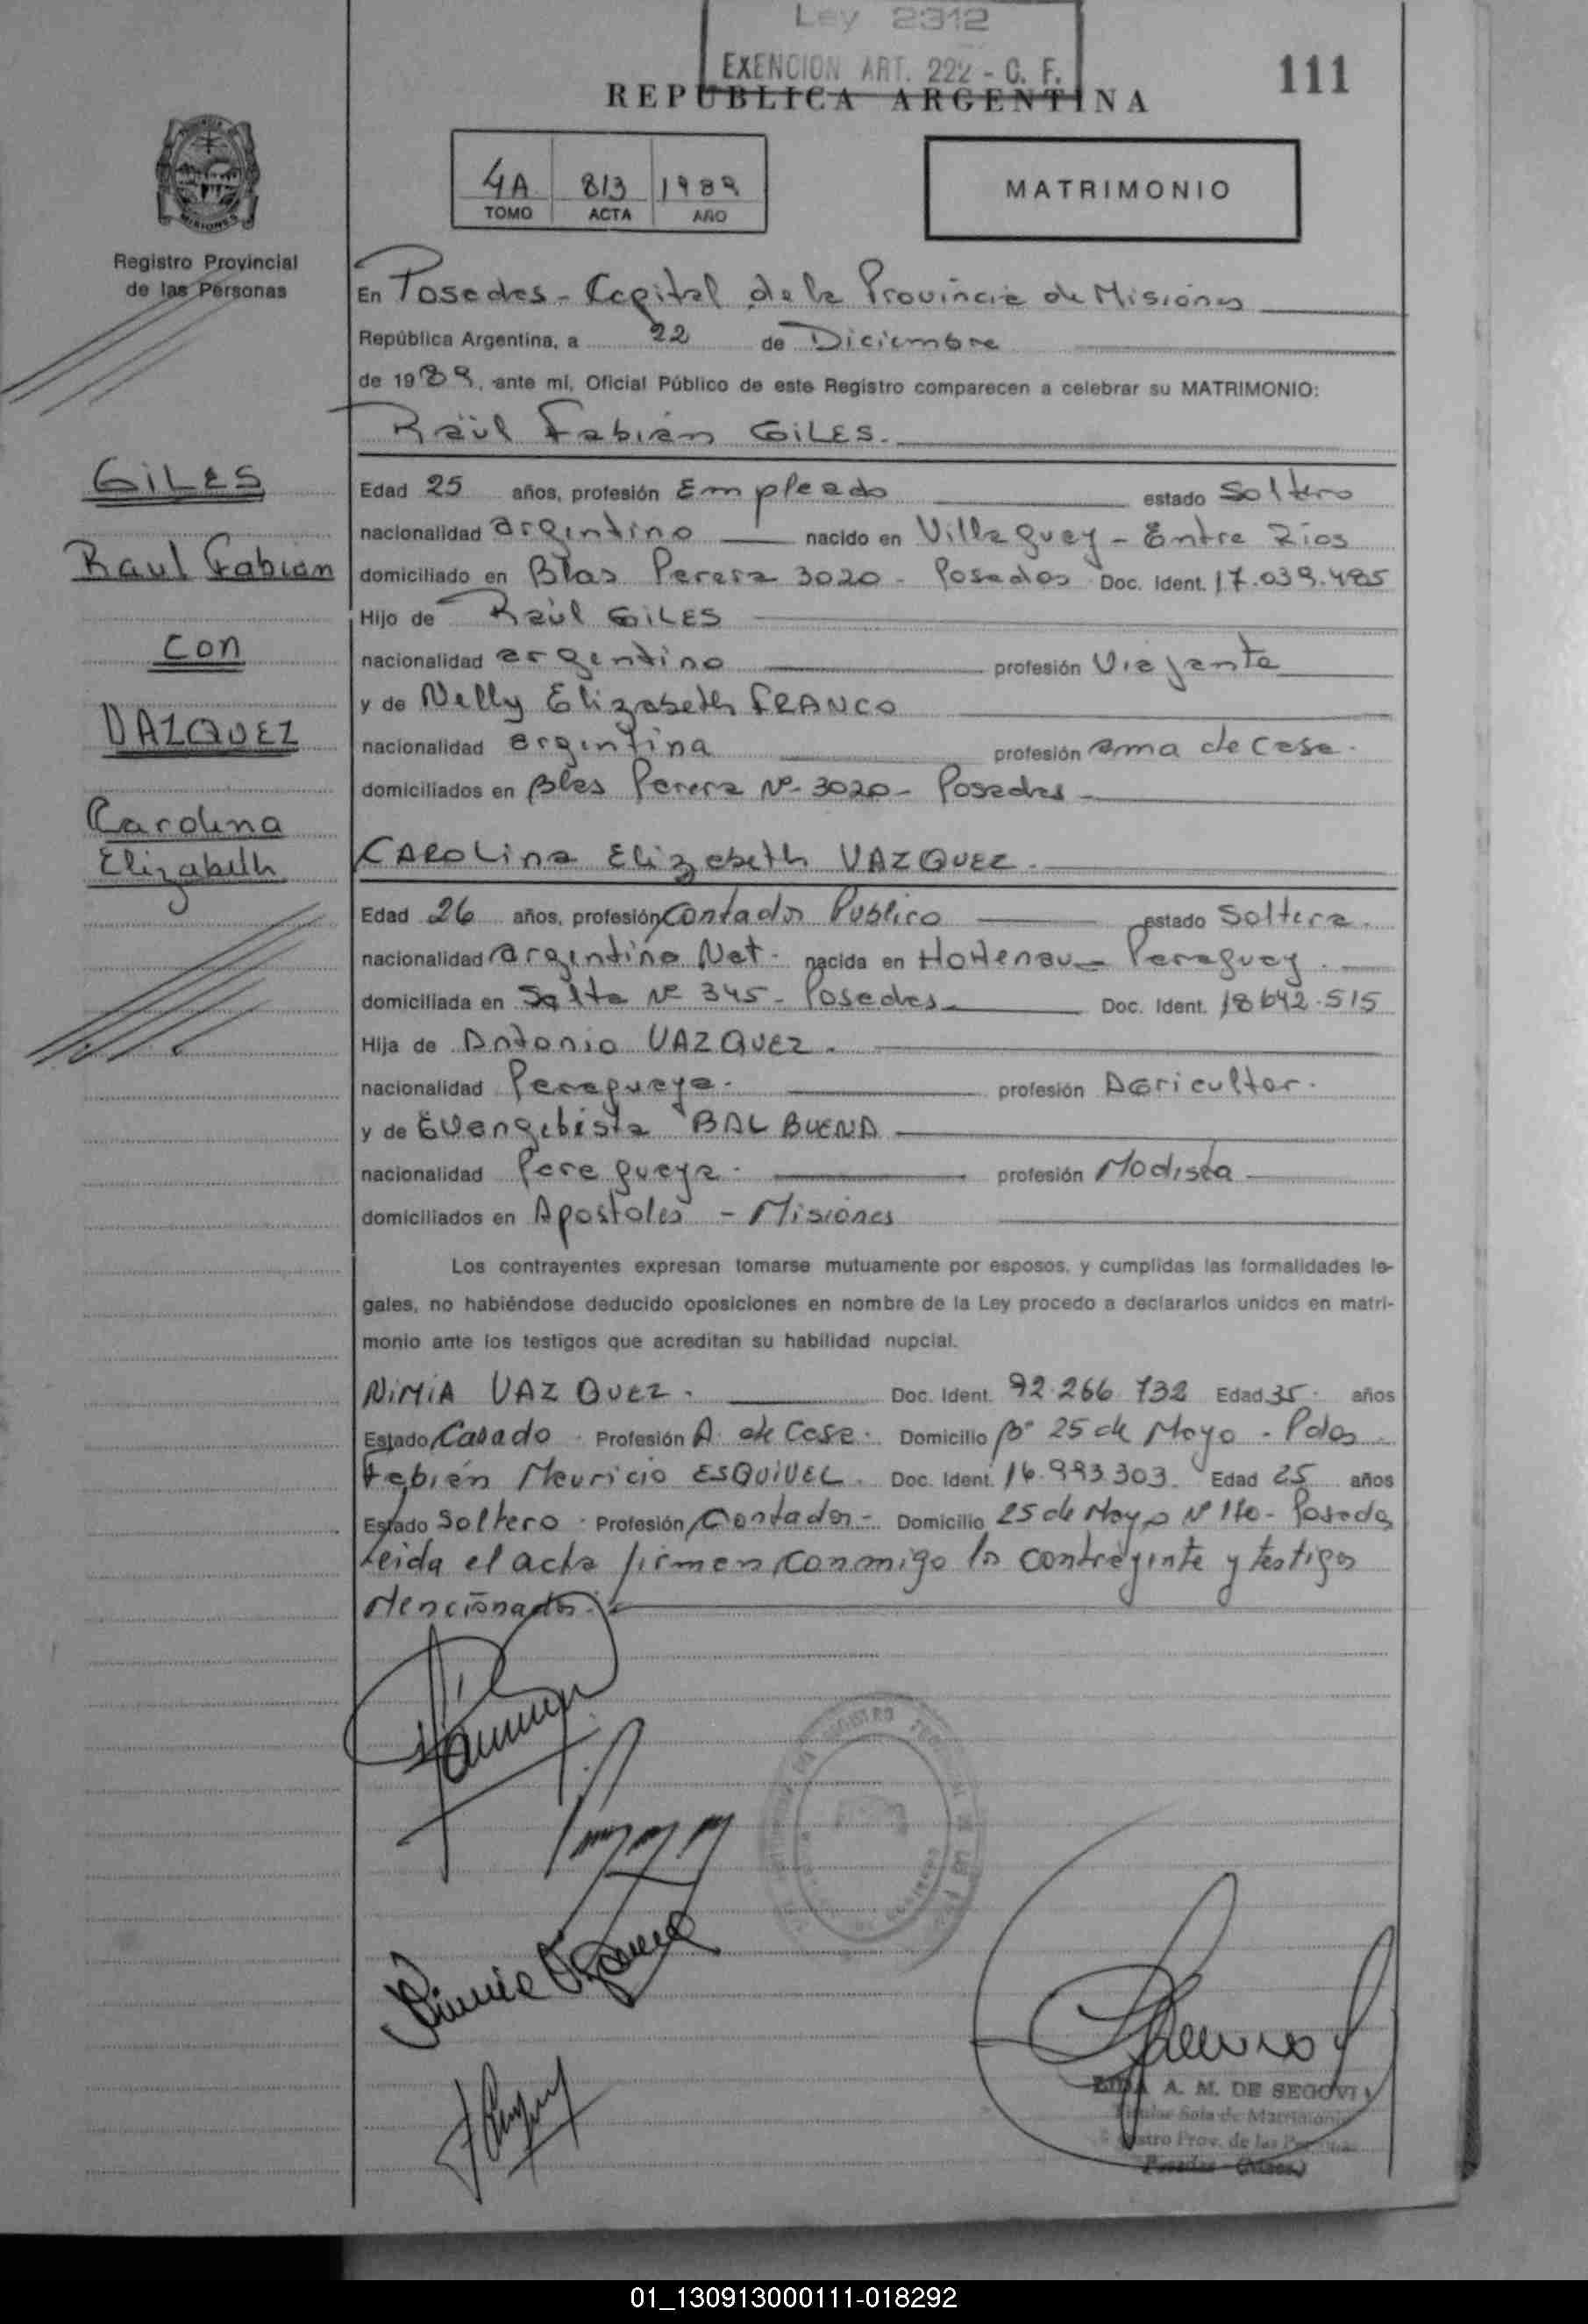 Ley 2312
EXENCION ART. 222 - C. F.
111
REPUBLICA ARGENTINA
4A 813 1989
TOMO ACTA AÑO
MATRIMONIO
MISIONES
Registro Provincial
de las Personas
En Posadas - Capital de la Provincia de Misiones
República Argentina, a 22 de Diciembre
de 1989, ante mí, Oficial Público de este Registro comparecen a celebrar su MATRIMONIO:
Raúl Fabián GILES.
GILES
Raul Fabian
con
VAZQUEZ
Carolina
Elizabeth
Edad 25 años, profesión Empleado estado Soltero
nacionalidad argentino nacido en Villaguay - Entre Ríos
domiciliado en Blas Perera 3020 - Posadas Doc. Ident. 17.039.485
Hijo de Raúl GILES
nacionalidad argentino profesión Viajante
y de Nelly Elizabeth FRANCO
nacionalidad argentina profesión ama de casa.
domiciliados en Blas Perera Nº 3020 - Posadas
CAROLina Elizabeth VAZQUEZ.
Edad 26 años, profesión Contador Publico estado Soltera.
nacionalidad argentina Nat. nacida en Hohenau - Paraguay.
domiciliada en Salta Nº 345 - Posadas Doc. Ident. 18642.515
Hija de Antonio VAZQUEZ.
nacionalidad Paraguaya. profesión Agricultor.
y de Evangelista BALBUENA
nacionalidad Paraguaya. profesión Modista
domiciliados en Apostoles - Misiones
Los contrayentes expresan tomarse mutuamente por esposos, y cumplidas las formalidades le-
gales, no habiéndose deducido oposiciones en nombre de la Ley procedo a declararlos unidos en matri-
monio ante los testigos que acreditan su habilidad nupcial.
NIMIA VAZQUEZ. Doc. Ident. 92.266.732 Edad 35. años
Estado Casado. Profesión A. de Casa. Domicilio Bº 25 de Mayo - Pdas.
Fabián Mauricio ESQUIVEL. Doc. Ident. 16.993.303. Edad 25 años
Estado Soltero. Profesión Contador - Domicilio 25 de Mayo Nº 110 - Posadas
Leida el acta firman conmigo los contrayente y testigos
Mencionados.
A. M. DE SEGOVIA
Titular Sala de Matrimonio
Prov. de las Personas
Posadas (Mnes.)
01_130913000111-018292